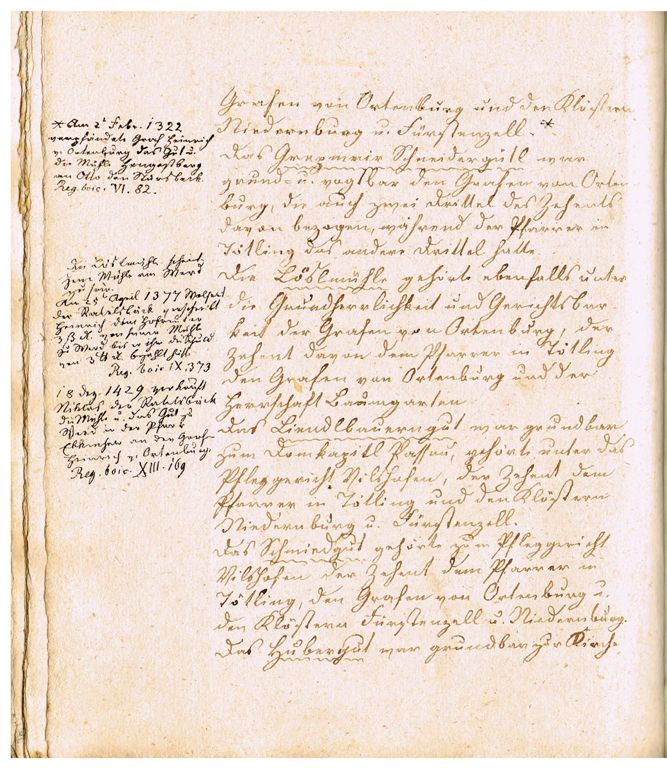 Grafen von Ortenburg und den Klöstern
Niedernburg u. Fürstenzell. *
Das Grepmair Schneidergütl war
grund- u. vogtbar den Grafen von Orten
burg, die auch zwei Drittel des Zehents
davon bezogen, während der Pfarrer in
Tötling das andere Drittel hatte.
Die Löslmühle gehörte ebenfalls unter
die Grundherrlichkeit und Gerichtsbar
keit der Grafen von Ortenburg, der
Zehent davon dem Pfarrer in Tötling
den Grafen von Ortenburg und der
Herrschaft Baumgarten.
Das Liendlbauerngut war grundbar
zum Domkapitl Passau, gehörte unter das
Pfleggericht Vilshofen, der Zehent dem
Pfarrer in Tötling und den Klöstern
Niedernburg u. Fürstenzell.
Das Schmiedgut gehörte zum Pfleggericht
Vilshofen der Zehent dem Pfarrer in
Tötling, den Grafen von Ortenburg u.
den Klöstern Fürstenzell u. Niedernburg.
Das Hubergut war grundbar zur Kirche
* Am 2t Febr. 1322
verpfändete Graf Heinrich
v. Ortenburg das Gut u.
die Mühle
an Otto den
Reg. boic. VI. 82.
Die Löslmühle scheint
jene Mühle am Werd
zu sein.
Am 25t April 1377
der Ratelsbäck verschreibt
Heinrich dem
3 ß d. von seiner Mühle
zu Werd bis er ihm die Schuld
von 3 ℔ d. bezahlt hat.
Reg. boic. IX. 373
18 Dez. 1429 verkauft
Niklas der Ratelsbäck
die Mühle u. das Gut zu
Werd in der Pfarr
an den Grafen
Heinrich v. Ortenburg.
Reg. boic. XIII. 169